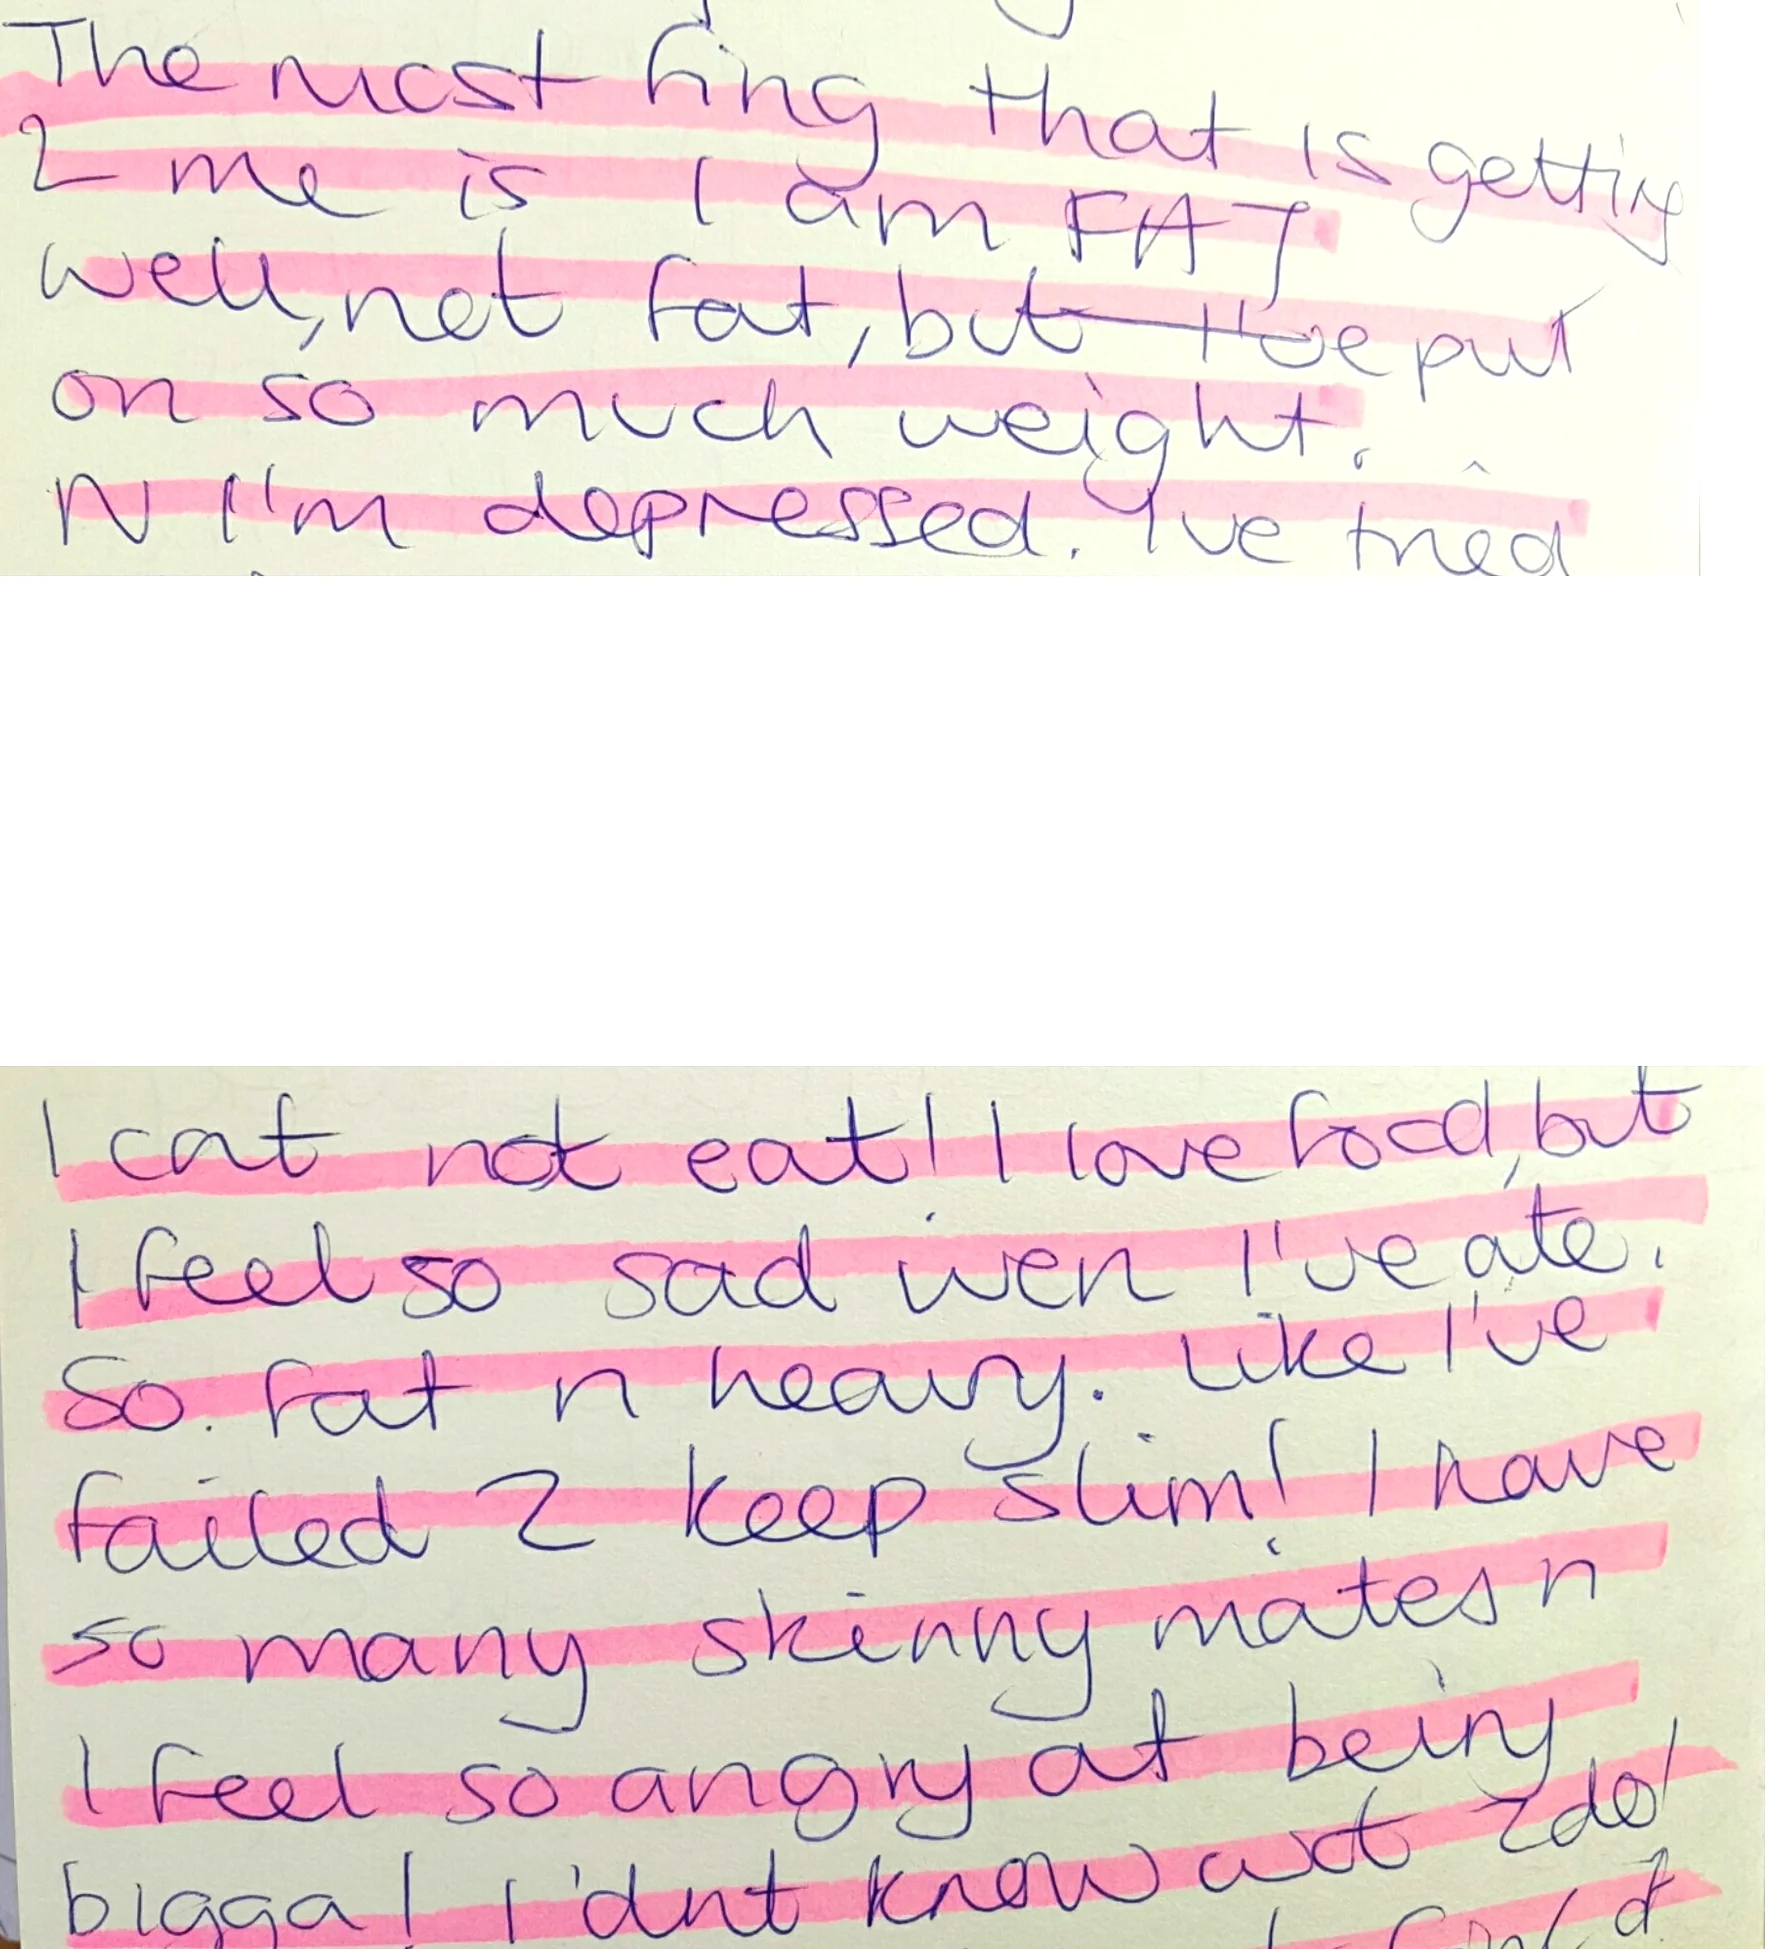 The most fing that is getting
2 me is I am FAT
well, not fat, but I've put
on so much weight.
N I'm depressed. I've tried
I cat not eat! I love food, but
I feel so sad wen I've ate.
So. fat n heavy. Like I've
failed 2 keep slim! I have
so many skinny mates n
I feel so angry at being
bigga! I dnt know wot 2 do!